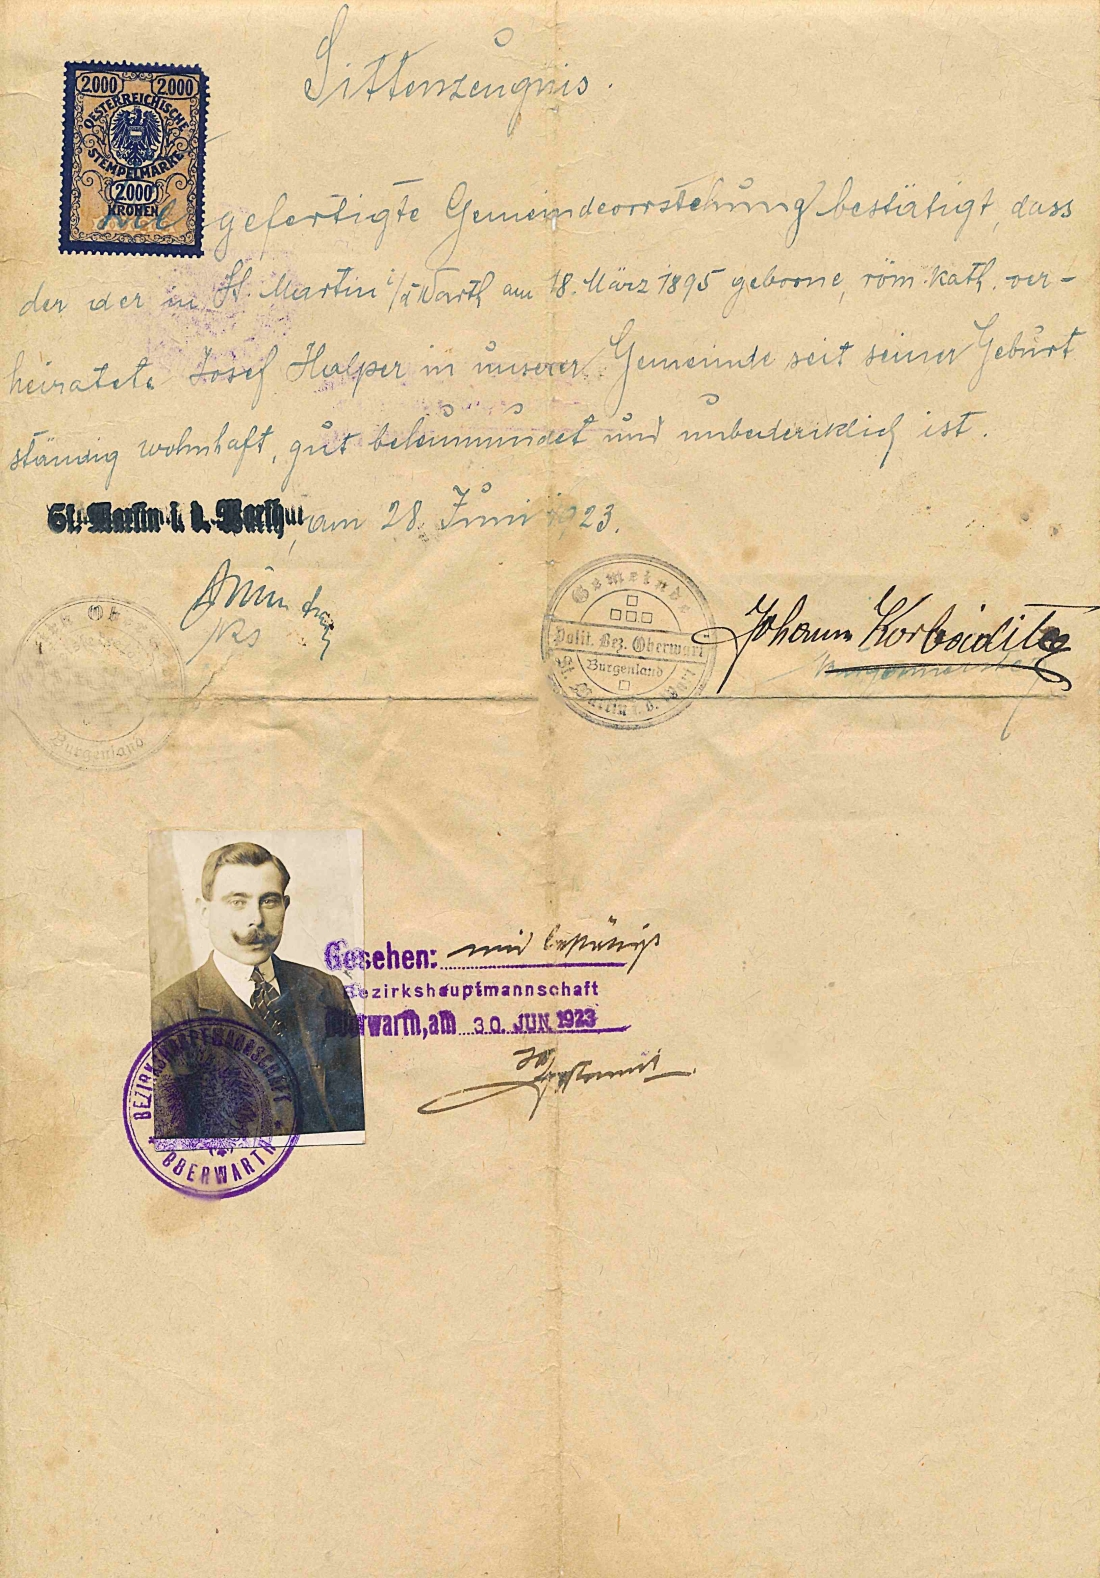 Sittenzeugnis.
2.000 2.000
OESTERREICHISCHE
STEMPELMARKE
2.000
KRONEN
gefertigte Gemeindevorstehung bestätigt, dass
der der in St. Martin i/d Warth am 18. März 1895 geborne, röm. kath. ver-
heiratete Josef Halper in unserer Gemeinde seit seiner Geburt
ständig wohnhaft, gut beleumundet und unbedenklich ist.
St. Martin i. d. Warth, am 28. Juni 1923.
Gemeinde
Polit. Bez. Oberwart
Burgenland
St. Martin i. d. Wart
Johann
Burgenland
Gesehen: und bestätigt
Bezirkshauptmannschaft
Oberwarth, am 30. JUN. 1923
BEZIRKSHAUPTMANNSCHAFT
OBERWARTH